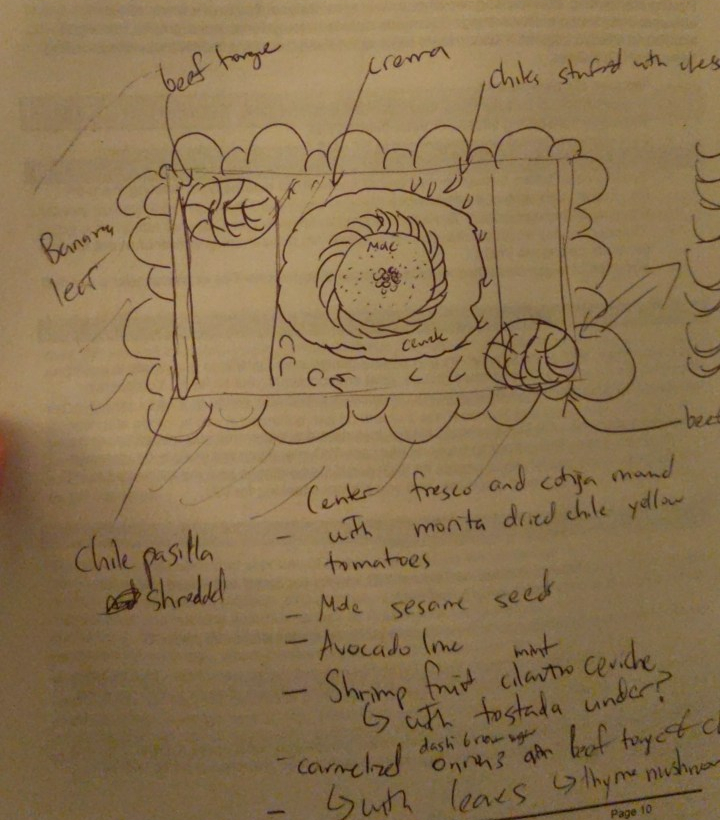 beef tonge
crema
chiles stuffed with chees
Banana
leaf
Mole
Ceviche
beef
Chile pasilla
shredded
Center fresco and cotija round
- with morita dried chile yellow
tomatoes
- Mole sesame seeds
- Avocado lime mint
- Shrimp fruit cilantro ceviche
↳ with tostada under?
dash brown sugar
- carmelized onions beef tonge
- ↳ with leaves ↳ thyme mushroom
Page 10